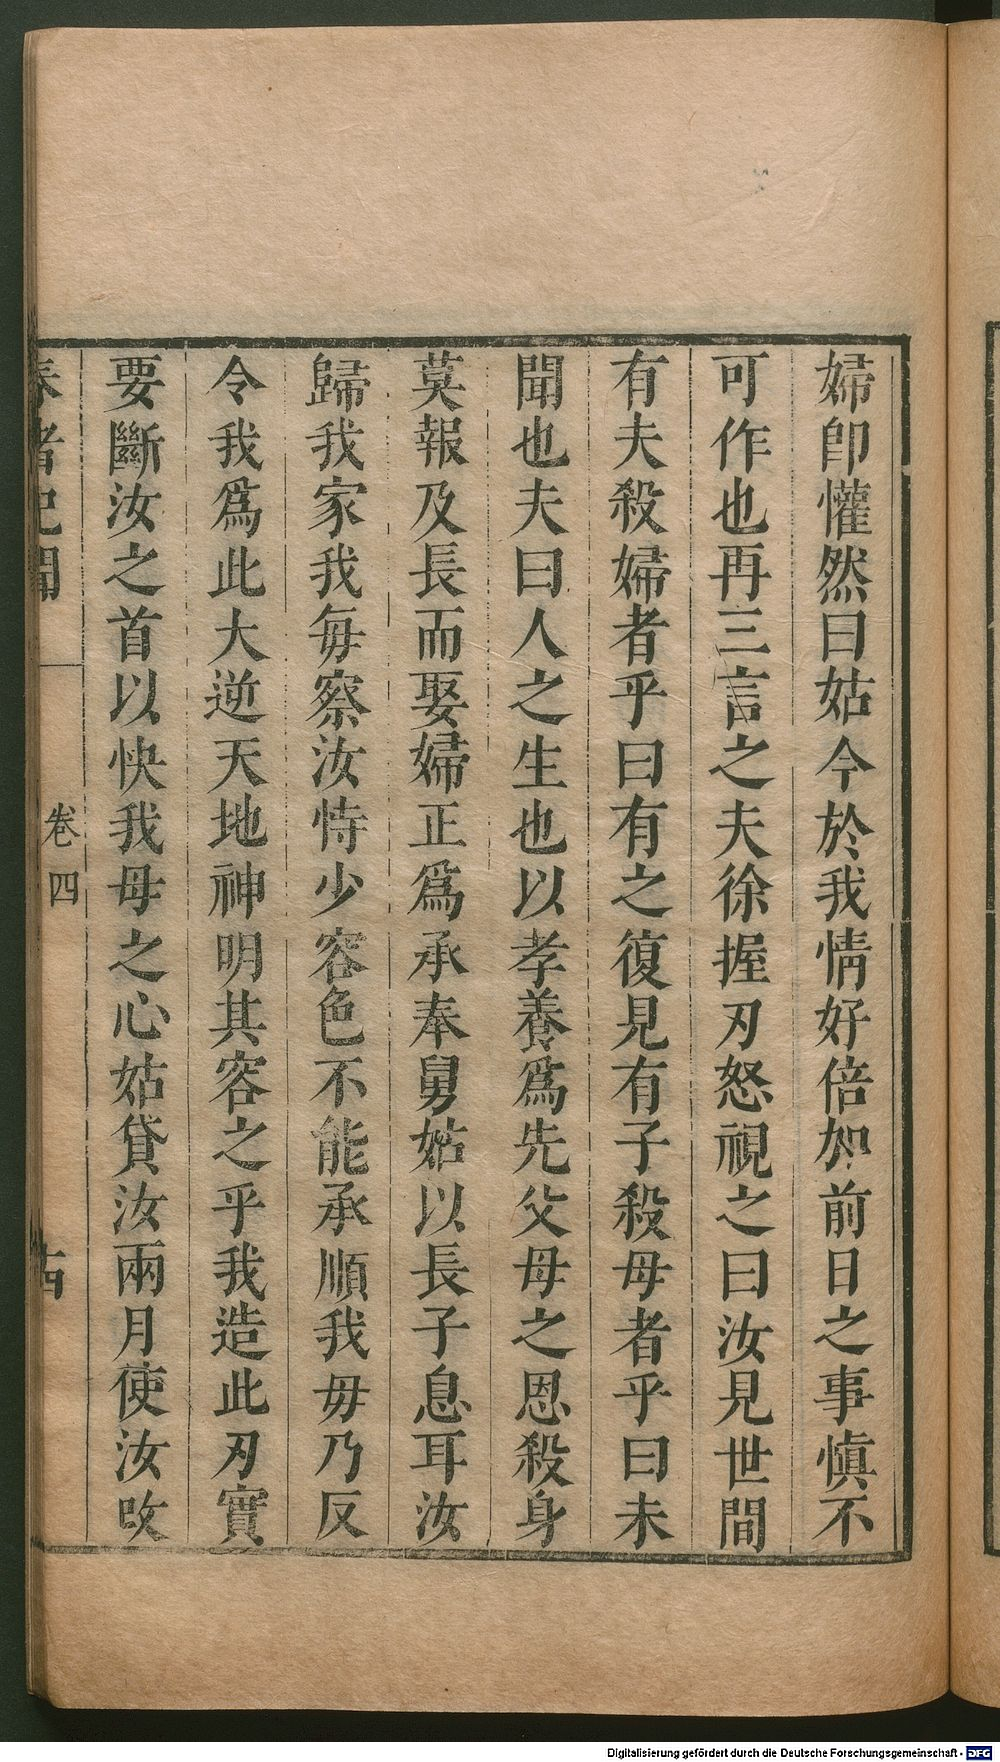 婦卽懽然曰姑今於我情好倍加前日之事愼不
可作也再三言之夫徐握刃怒視之曰汝見世間
有夫殺婦者乎曰有之復見有子殺母者乎曰未
聞也夫曰人之生也以孝養爲先父母之恩殺身
莫報及長而娶婦正爲承奉舅姑以長子息耳汝
歸我家我每察汝恃少容色不能承順我毋乃反
令我爲此大逆天地神明其容之乎我造此刃實
要斷汝之首以快我母之心姑貸汝兩月使汝改
春渚紀聞
卷四
Digitalisierung gefördert durch die Deutsche Forschungsgemeinschaft - DFG